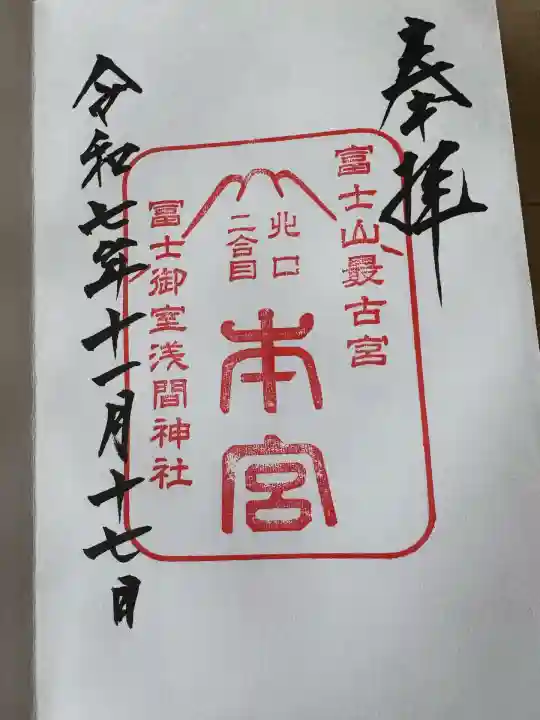 奉拝
富士山最古宮
北口
二合目
本宮
冨士御室浅間神社
令和七年十一月十七日